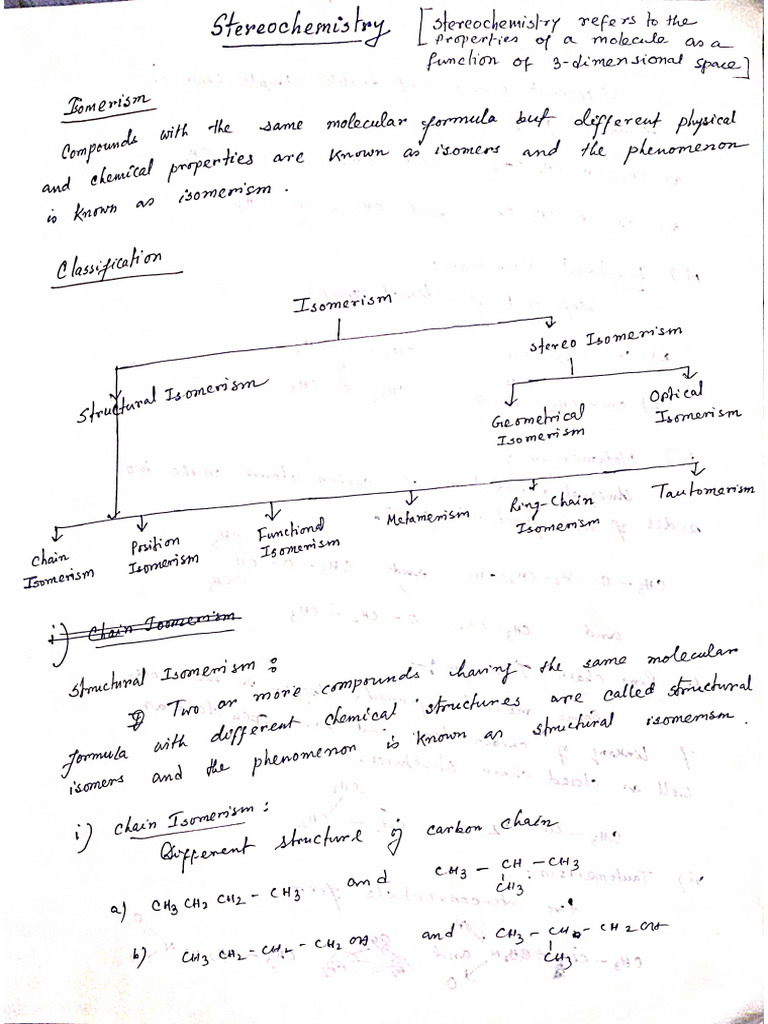 Stereochemistry [Stereochemistry refers to the
properties of a molecule as a
function of 3-dimensional space]
Isomerism
Compounds with the same molecular formula but different physical
and chemical properties are known as isomers and the phenomenon
is known as isomerism.
Classification
Isomerism
Stereo Isomerism
Structural Isomerism
Geometrical
Isomerism
Optical
Isomerism
Chain
Isomerism
Position
Isomerism
Functional
Isomerism
Metamerism
Ring-Chain
Isomerism
Tautomerism
i) Chain Isomerism
Structural Isomerism :
Two or more compounds having the same molecular
formula with different chemical structures are called structural
isomers and the phenomenon is known as structural isomerism.
i) Chain Isomerism :
Different structure of carbon chain
a) CH3 CH2 CH2 - CH3 and CH3 - CH - CH3
CH3
b) CH3 CH2 - CH2 - CH2 OH and CH3 - CH - CH2OH
CH3